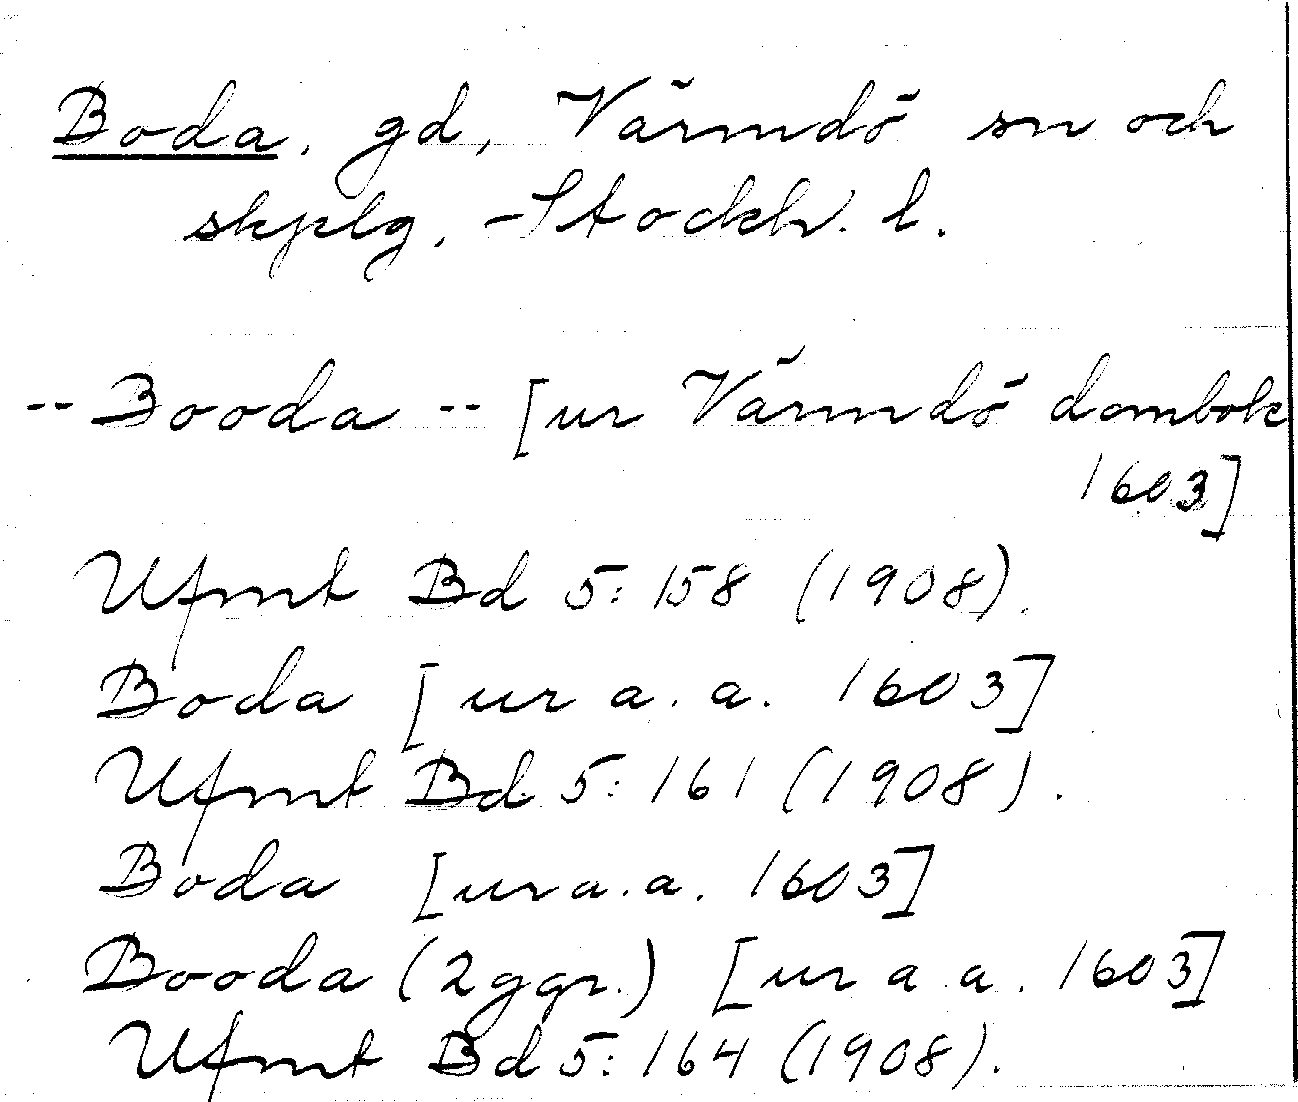 Boda, gd, Värmdö sn och
skplg, Stockh. l.
-- Booda -- [ur Värmdö dombok
1603]
Ufmt Bd 5: 158 (1908).
Boda [ur a. a. 1603]
Ufmt Bd 5: 161 (1908).
Boda [ur a. a. 1603]
Booda (2 ggr.) [ur a a. 1603]
Ufmt Bd 5: 164 (1908).